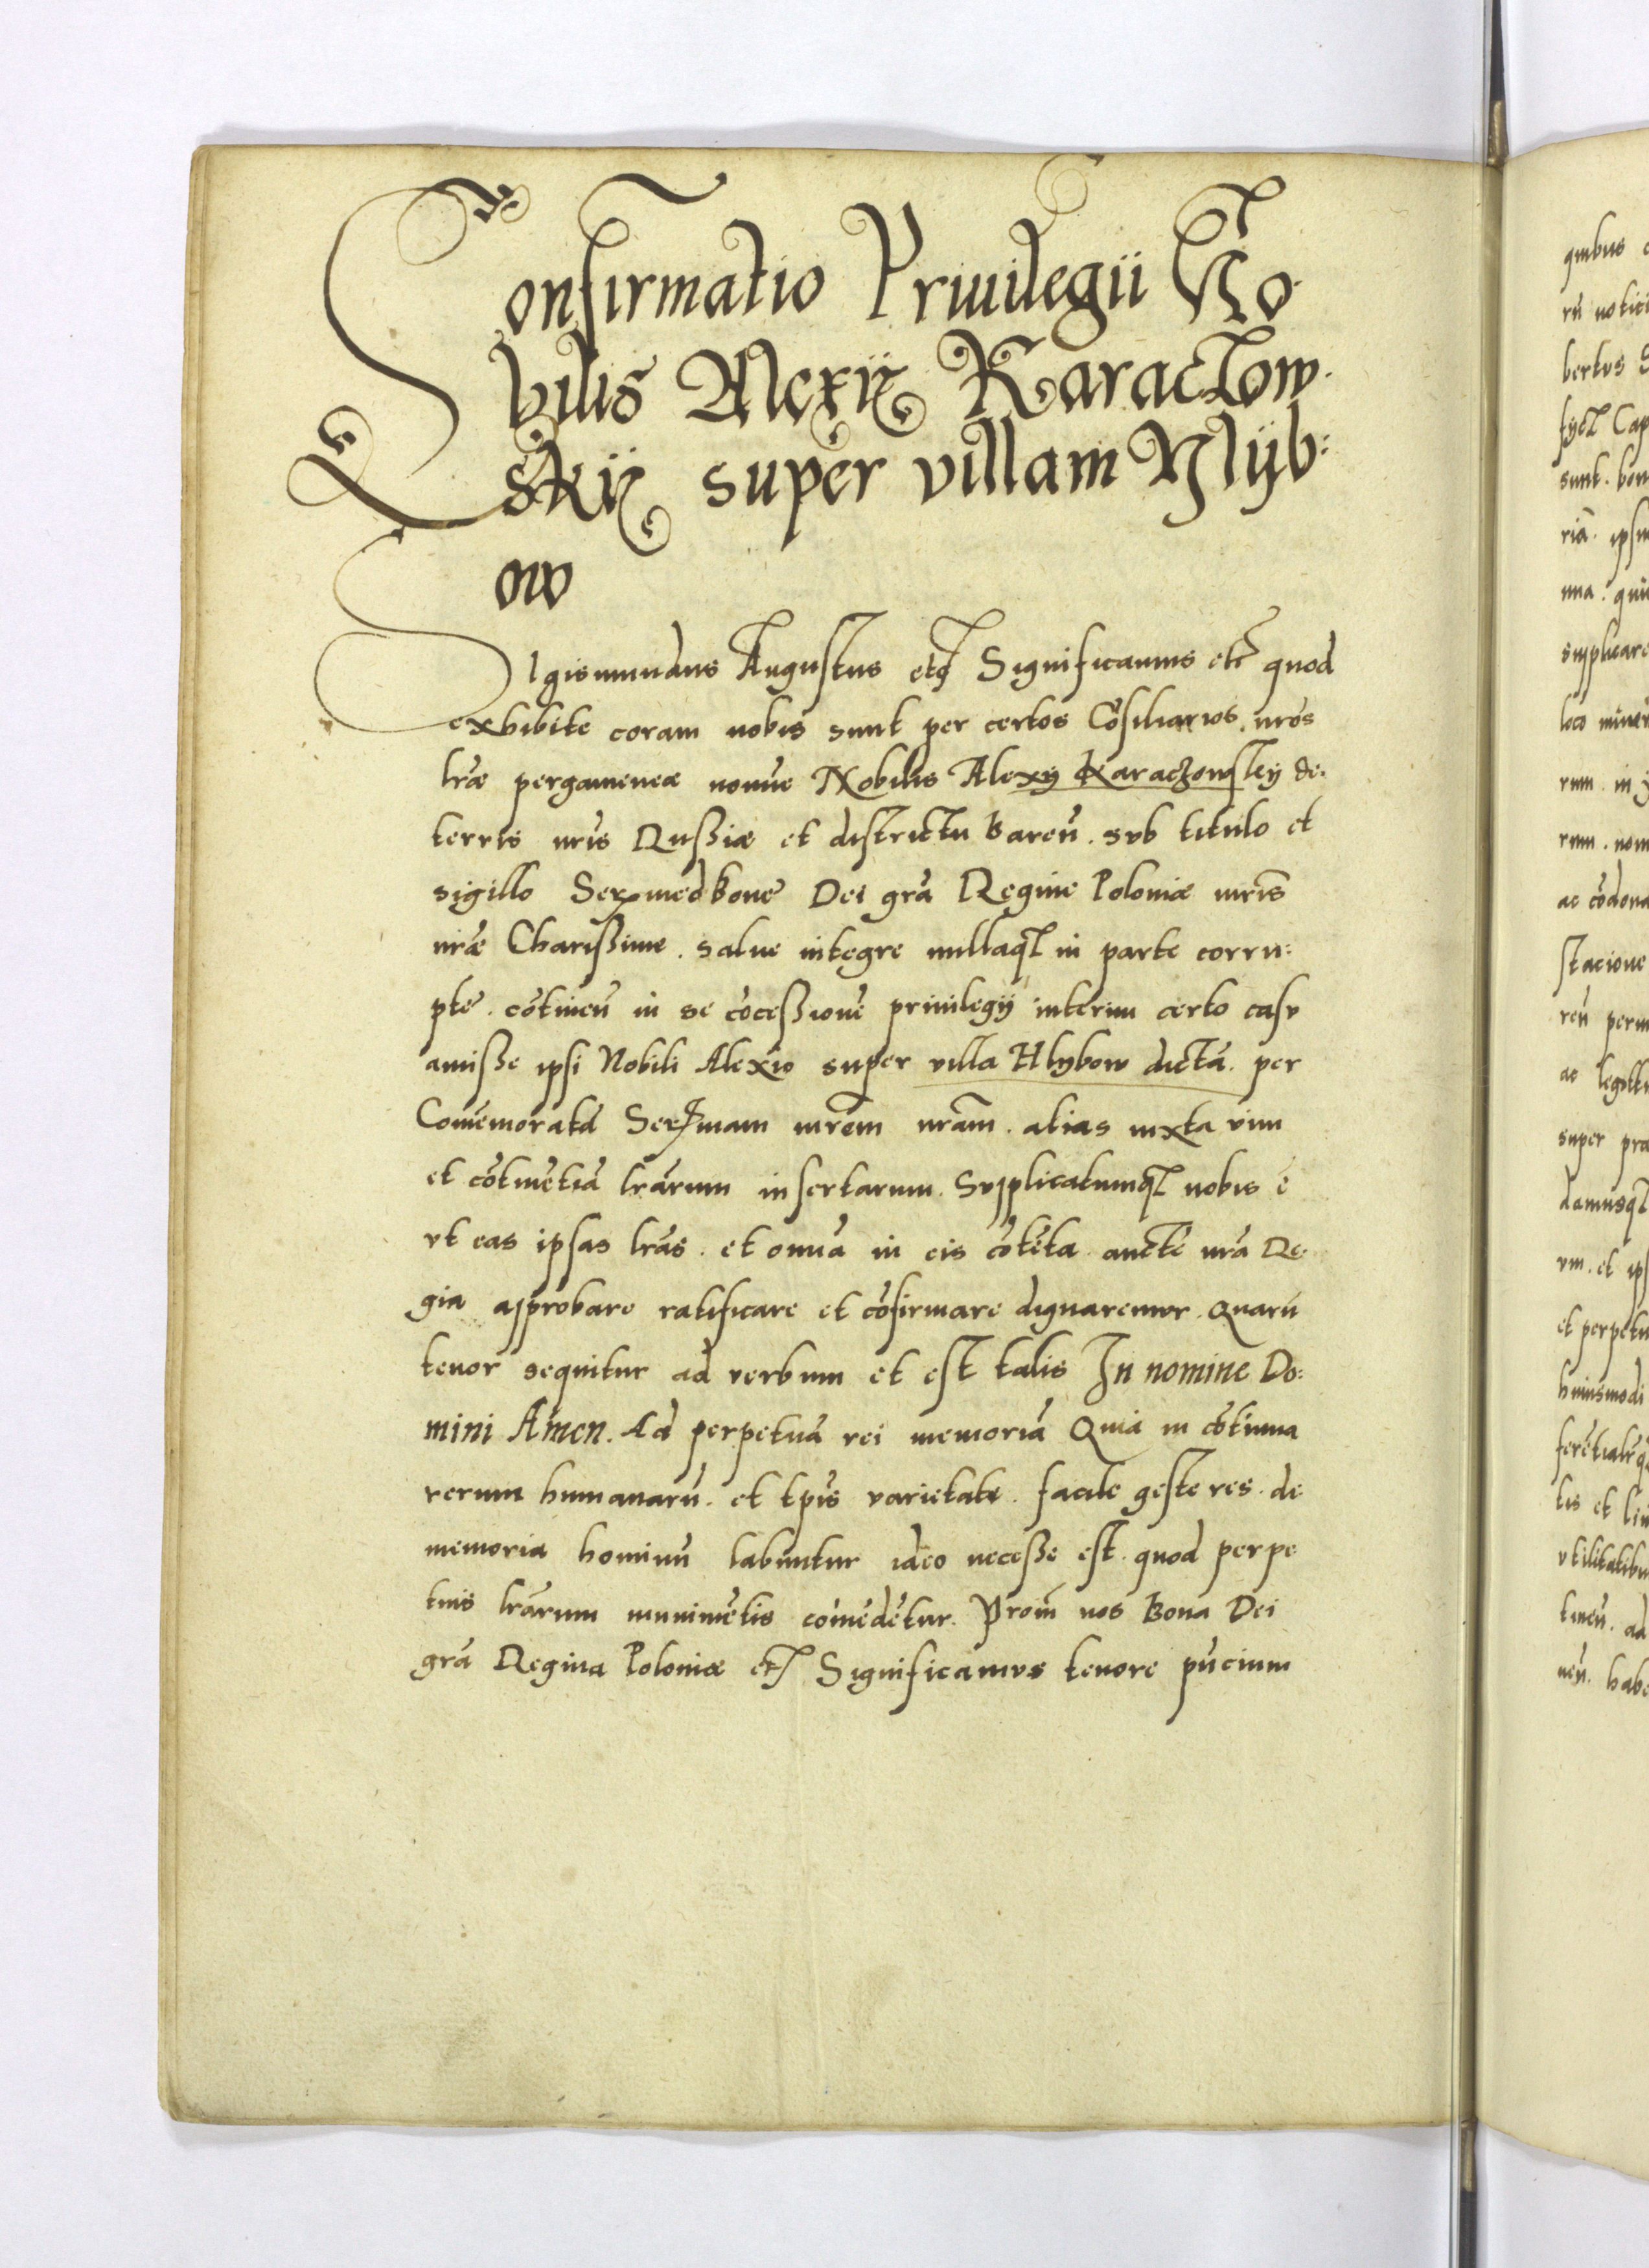 Confirmatio Priuilegii No
bilis Alexii Karaczow
skii super villam Hlÿb:
ow
Sigismundus Augustus etc Significamus etc quod
exhibite coram nobis sunt per certos Cõsiliarios nr̃os
lr̃æ pergameneæ nomĩe Nobilis Alexÿ Karaczowskÿ de
terris nr̃is Russiæ et districtu Bareñ. svb titulo et
sigillo Dei gr̃a Regine Poloniæ mr̃is
nr̃æ Charissime. salue integre nullaq3 in parte corru:
pte. cõtineñ in se cõcessionẽ priuilegÿ interim certo casv
amisse ipsi Nobili Alexio super villa Hlybow dictã. per
Comẽmoratã Serᵐmam mr̃em nr̃am. alias iuxta vim
et cõtinẽtiã lr̃arum insertarum. Svpplicatumq3 nobis ẽ
vt eas ipsas lr̃as. et omĩa in eis cõtẽta. auctẽ nr̃a Re
gia approbare ratificare et cõfirmare dignaremvr. Quarũ
tenor sequitur ad verbum et est talis In nomine Do:
mini Amen. Ad perpetuã rei memoriã Quia in cõtinua
rerum humanarũ. et tp̃is varietate. facile geste res. de
memoria hominũ labuntur ideo necesse est. quod perpe
tuis lr̃arum munimẽtis comẽdẽtur. Proin̄ nos Bona Dei
gr̃a Regina Poloniæ etc Significamvs tenore pñcium
quibus
rũ notici
bertvs
Cap
sunt. bon
riã. ipsi
supplicare
loco
rum. in
rum. nom
ac cõdona
stacione
reñ perm
ac
super pra
damusq3
vm. et ip
et perpetu
huiusmodi
tis et
vtilitatibu
tineñ. ad
neñ. habe